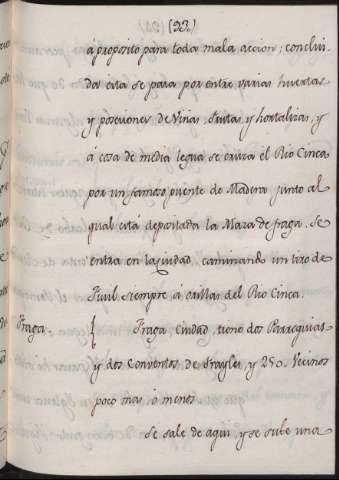 (23)
á proposito para toda mala accion; conclui-
da esta se pasa por entre varias huertas
y posesiones de Viñas, frutas, y hortalizas, y
á cosa de media legua se cruza el Rio Cinca
por un famoso puente de Madera junto al
qual está depositada la Maza de fraga. Se
entra en la Ciudad, caminando un tiro de
Fusil siempre á orillas del Rio Cinca.
Fraga. { Fraga, Ciudad, tiene dos Parroquias
y dos Conventos de frayles, y 250. Vecinos
poco mas, ó menos
Se sale de aqui, y se sube una